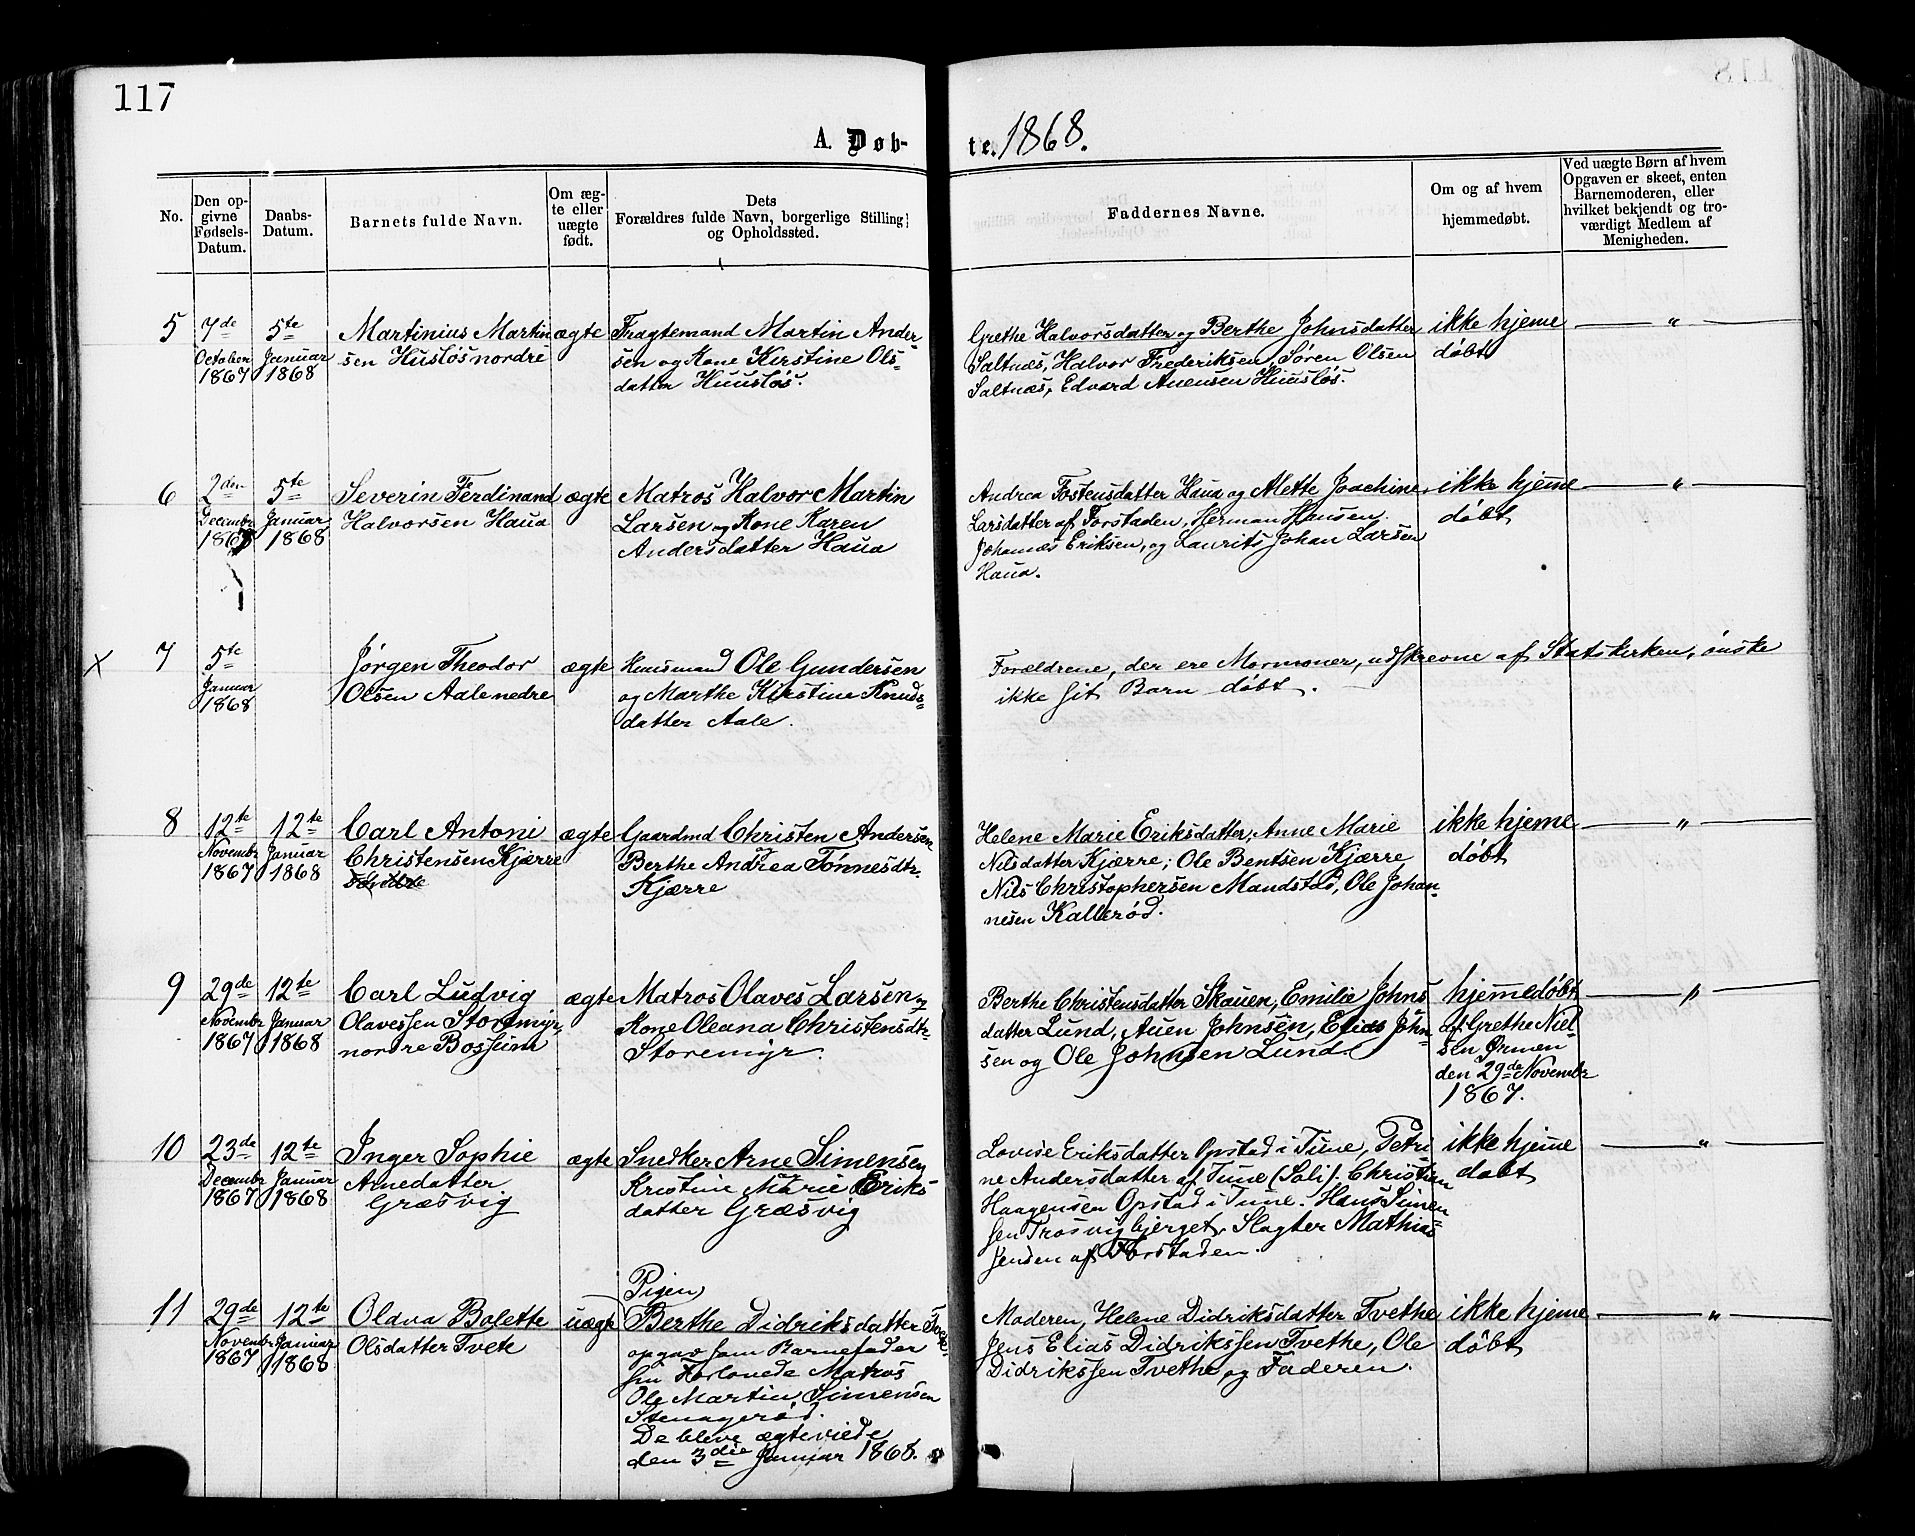 117
A. Døb-
te. 1868.
No.
Den op-
givne
Fødsels-
Datum.
Daabs-
Datum.
Barnets fulde Navn.
Om æg-
te eller
uægte
født.
Dets
Forældres fulde Navn, borgerlige Stilling
og Opholdssted.
Faddernes Navne.
Om og af hvem
hjemmedøbt.
Ved uægte Børn af hvem
Opgaven er skeet, enten
Barnemoderen, eller
hvilket bekjendt og tro-
værdigt Medlem af
Menigheden.
5
7de
October
1867
5te
Januar
1868
Martinius Martin
sen Husløs nordre
ægte
Fragtemand Martin Ander-
sen og Kone Kirstine Ols-
datter Huusløs.
Grethe Halvorsdatter og Berthe Johnsdatter
Saltnæs, Halvor Frederiksen, Søren Olsen
Saltnæs, Edvard Anensen Huusløs.
ikke hjeme
døbt
"
6
2den
Decembr
1867
5te
Januar
1868
Severin Ferdinand
Halvorsen Haua
ægte
Matros Halvor Martin
Larsen og Kone Karen
Andersdatter Haua
Andrea Tostensdatter Haua og Mette Joachine
Larsdatter af Forstaden, Herman Hansen
Johannes Eriksen, og Laurits Johan Larsen
Haua.
ikke hjeme
døbt
"
x
7
5te
Januar
1868
Jørgen Theodor
Olsen Aale nedre
ægte
Huusmand Ole Gundersen
og Marthe Kirstine Knuds-
datter Aale.
Forældrene, der ere Mormoner, udskrevne af Statskirken, ønske
ikke sit Barn døbt.
8
12te
Novembr
1867
12te
Januar
1868
Carl Antoni
Christensen Kjærre
ægte
Gaardmd Christen Andersen
og
Berthe Andrea Tønnesdtr.
Kjærre
Helene Marie Eriksdatter, Anne Marie
Nilsdatter Kjærre; Ole Bentsen Kjærre
Nils Christophersen Mandstad, Ole Johan-
nesen Kallerød.
ikke hjeme
døbt
"
9
29de
Novembr
1867
12te
Januar
1868
Carl Ludvig
Olavessen Storemyr,
nordre Bossum
ægte
Matros Olaves Larsen og
Kone Oleana Christensdtr.
Storemyr.
Berthe Christensdatter Skauen, Emilie Johns
datter Lund, Auen Johnsen, Elias John-
sen og Ole Johnsen Lund
hjemedøbt
af Grethe Niel-
sen Ørmen
den 29de Novembr
1867.
"
10
23de
Decembr
1867
12te
Januar
1868
Inger Sophie
Arnedatter
Græsvig
ægte
Snedker Arne Simensen
Kristine Marie Eriks-
datter Græsvig
Lovise Eriksdatter Opstad i Tune, Petri
ne Andersdatter af Tune (Soli). Christian
Haagensen Opstad i Tune. Hans Simen
sen Trosvigbjerget, Slagter Mathias
Jensen af Forstaden.
ikke hjeme
døbt
"
11
29de
Novembr
1867
12te
Januar
1868
Olava Bolette
Olsdatter Tvete
uægte
Pigen
Berthe Didriksdatter Tvete
opgav som Barnefader
sin Forlovede Matros
Ole Martin Simensen
Stenagerød.
De bleve ægteviede
den 3die Januar 1868.
Moderen, Helene Didriksdatter Tvethe
Jens Elias Didrikssen Tvethe, Ole
Didrikssen Tvethe og Faderen.
ikke hjeme
døbt
"